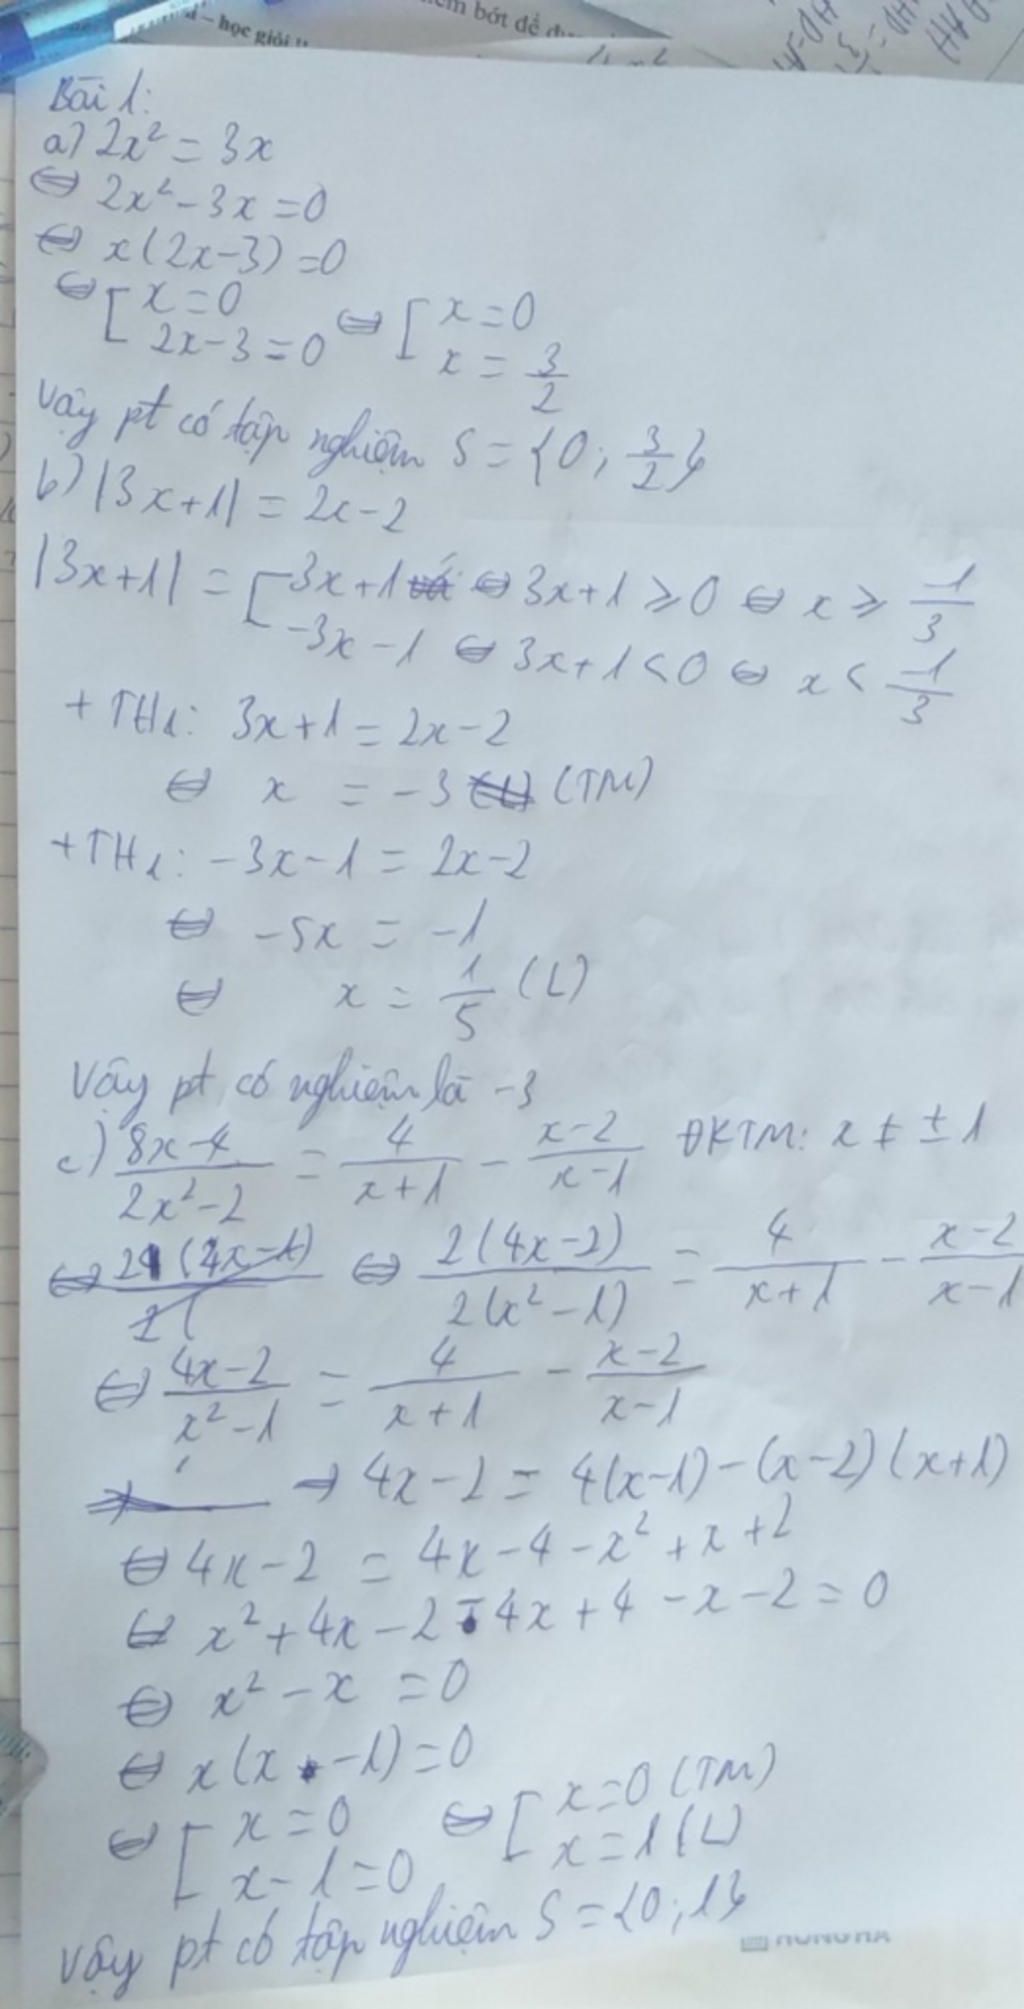 – học giỏi !!
bớt để
Bài 1:
a) 2x² = 3x
⇔ 2x² - 3x = 0
⇔ x(2x-3) = 0
⇔ [ x = 0 ⇔ [ x = 0
2x-3 = 0 x = 3/2
Vậy pt có tập nghiệm S = {0; 3/2}
b) |3x+1| = 2x-2
|3x+1| = [ 3x+1 ⇔ 3x+1 ≥ 0 ⇔ x ≥ -1/3
-3x-1 ⇔ 3x+1 < 0 ⇔ x < -1/3
+ TH1: 3x+1 = 2x-2
⇔ x = -3 (TM)
+ TH2: -3x-1 = 2x-2
⇔ -5x = -1
⇔ x = 1/5 (L)
Vậy pt có nghiệm là -3
c) (8x-4)/(2x²-2) = 4/(x+1) - (x-2)/(x-1) ĐKTM: x ≠ ±1
⇔ 2(4x-2)/2(x²-1) = 4/(x+1) - (x-2)/(x-1)
⇔ (4x-2)/(x²-1) = 4/(x+1) - (x-2)/(x-1)
⇒ 4x-2 = 4(x-1) - (x-2)(x+1)
⇔ 4x-2 = 4x-4-x²+x+2
⇔ x²+4x-2-4x+4-x-2 = 0
⇔ x²-x = 0
⇔ x(x-1) = 0
⇔ [ x = 0 ⇔ [ x = 0 (TM)
x-1 = 0 x = 1 (L)
Vậy pt có tập nghiệm S = {0; 1}
HONG HA